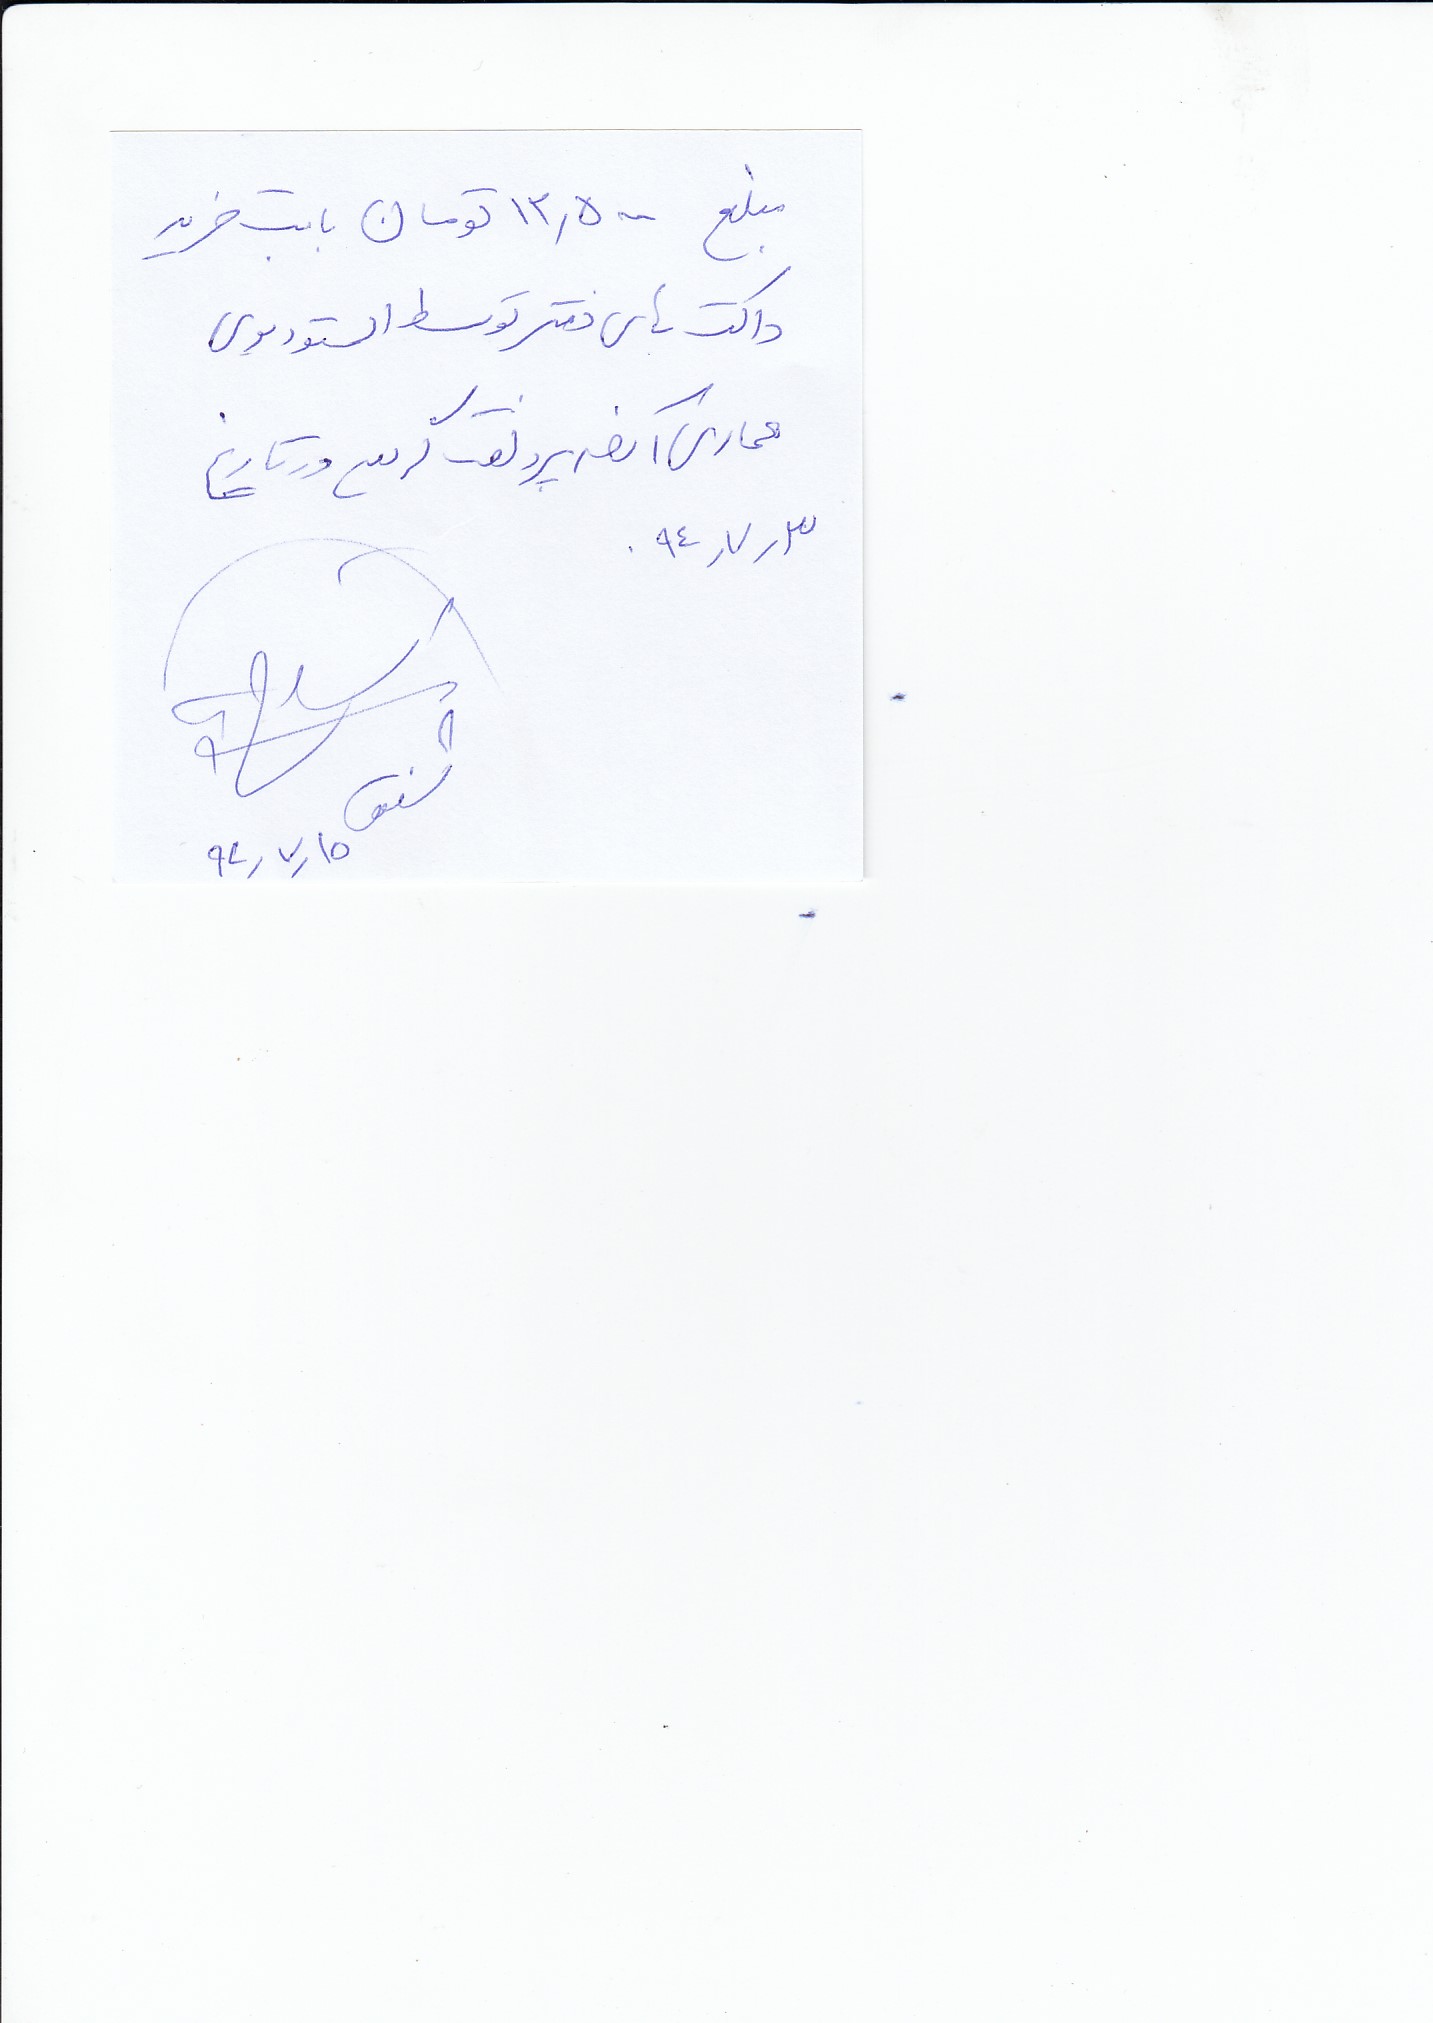 مبلغ ۱۳٫۵۰۰ تومان بابت خرید
داکت های دفتر توسط استودیوی
معماری پرداخت گردید در تاریخ
۹۴٫۷٫۳۰.
۹۴٫۷٫۱۵